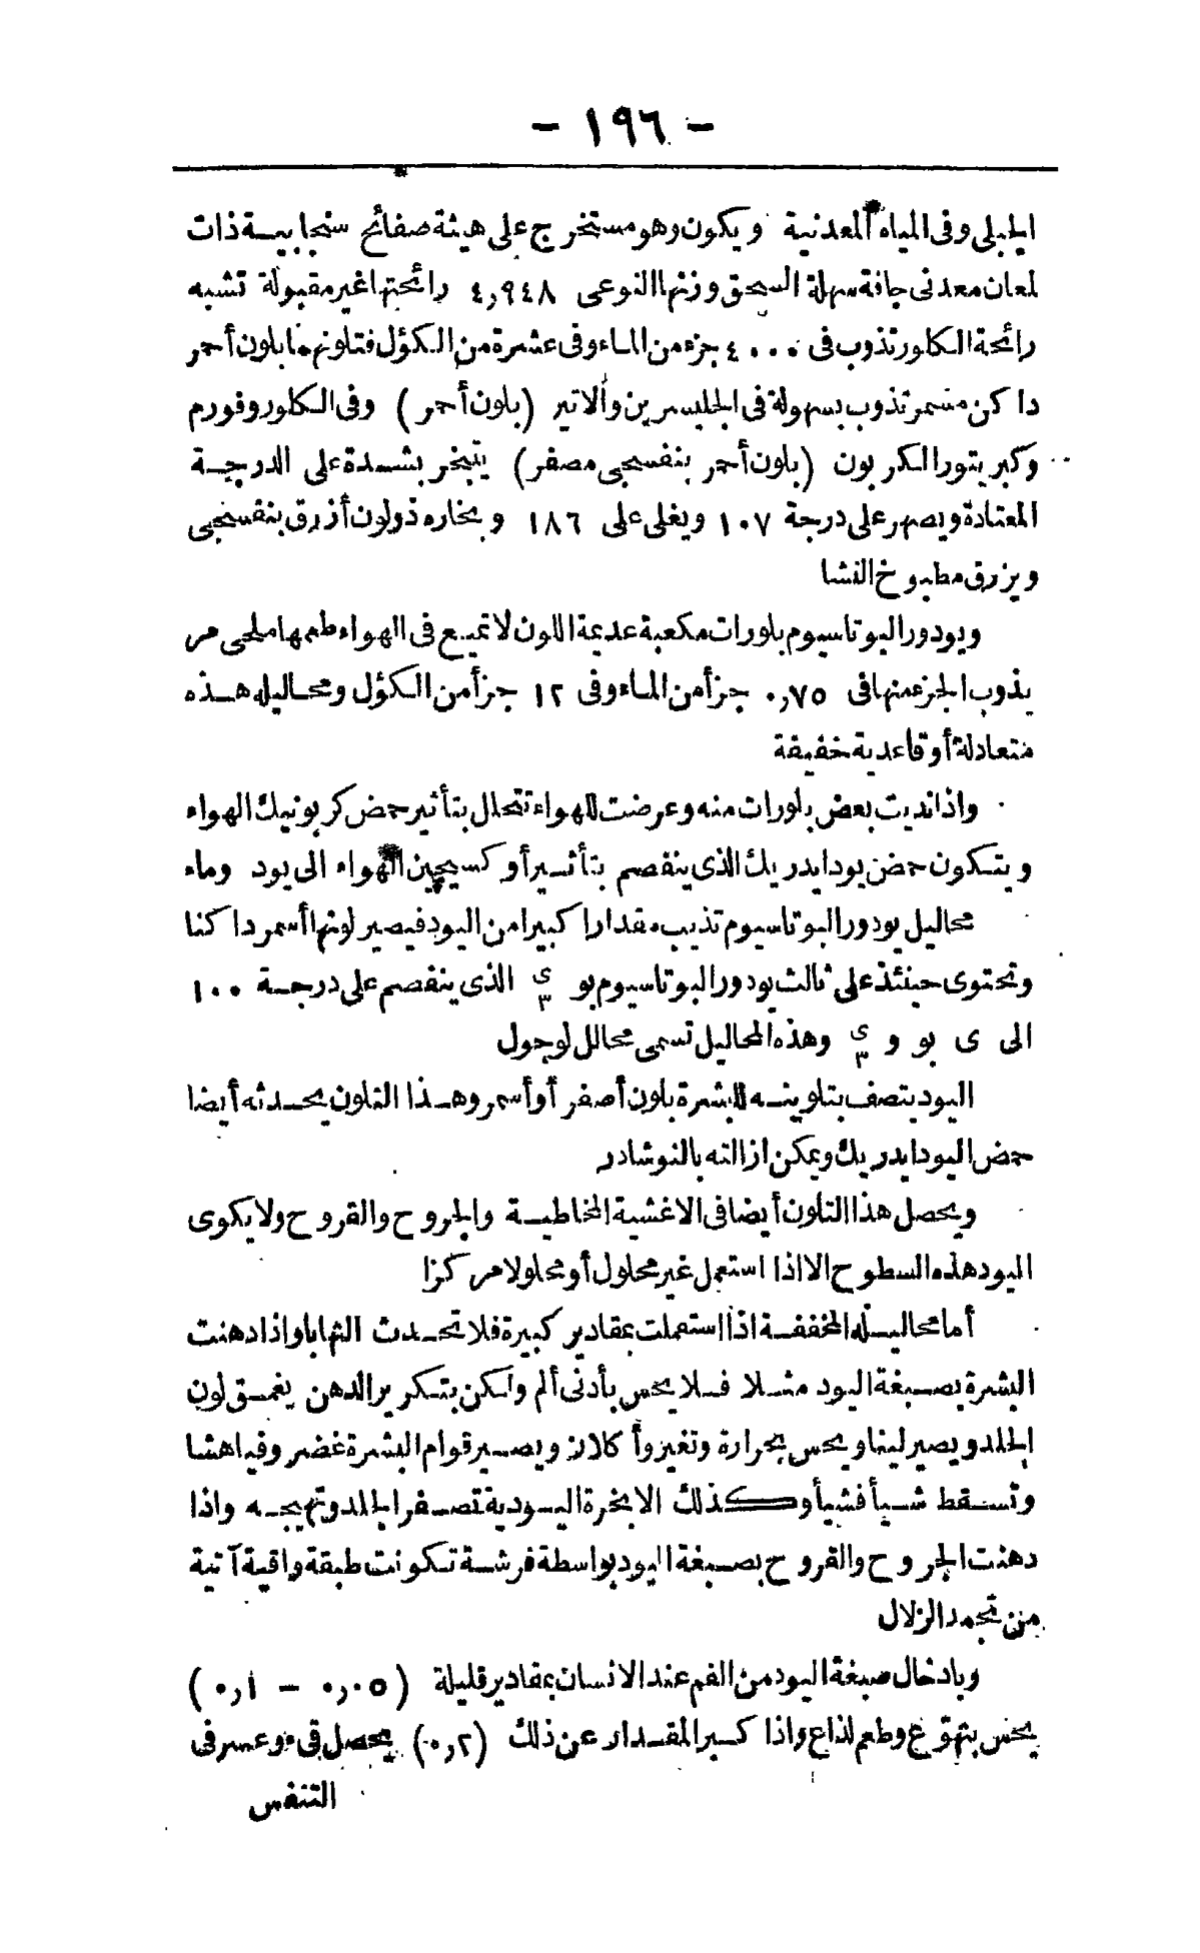 - ١٩٦ -
الجبلى وفى المياه المعدنية ويكون وهو مستخرج على هيئة صفائح سنجابية ذات
لمعان معدنى جافة سهلة السحق وزنها النوعى ٤,٩٤٨ رائحتها غير مقبولة تشبه
رائحة الكلور تذوب فى ٤٠٠٠ جزء من الماء وفى عشرة من الكؤل فتلونهما بلون أحمر
داكن مسمر تذوب بسهولة فى الجليسرين والاتير (بلون أحمر) وفى الكلوروفورم
وكبريتور الكربون (بلون أحمر بنفسجى مصفر) يتبخر بشدة على الدرجة
المعتادة ويصهر على درجة ١٠٧ ويغلى على ١٨٦ وبخاره ذو لون أزرق بنفسجى
ويزرق مطبوخ النشا
ويودور البوتاسيوم بلورات مكعبة عديمة اللون لا تميع فى الهواء طعمها ملحى مر
يذوب الجزء منها فى ٠,٧٥ جزأ من الماء وفى ١٢ جزأ من الكؤل ومحاليله هذه
متعادلة أو قاعدية خفيفة
واذا نديت بعض بلورات منه وعرضت للهواء تتحلل بتأثير حمض كربونيك الهواء
ويتكون حمض يودايدريك الذى ينقصم بتأثير أوكسيجين الهواء الى يود وماء
محاليل يودور البوتاسيوم تذيب مقدارا كبيرا من اليود فيصير لونها أسمر داكنا
وتحتوى حينئذ على ثالث يودور البوتاسيوم بو ى٣ الذى ينقصم على درجة ١٠٠
الى ى بو و ى٣ وهذه المحاليل تسمى محالل لوجول
اليود يتصف بتلوينه للبشرة بلون أصفر أو أسمر وهذا التلون يحدثه أيضا
حمض اليودايدريك ويمكن ازالته بالنوشادر
ويحصل هذا التلون أيضا فى الاغشية المخاطية والجروح والقروح ولا يكوى
اليود هذه السطوح الا اذا استعمل غير محلول أو محلولا مركزا
أما محاليله المخففة اذا استعملت بمقادير كبيرة فلا تحدث التهابا واذا دهنت
البشرة بصبغة اليود مثلا فلا يحس بأدنى ألم ولكن بتكرير الدهن يغمق لون
الجلد ويصير لينا ويحس بحرارة وتغيز وأكلان ويصير قوام البشرة غضروفيا هشا
وتسقط شيأ فشيأ وكذلك الابخرة اليودية تصفر الجلد وتهيجه واذا
دهنت الجروح والقروح بصبغة اليود بواسطة فرشة تكونت طبقة واقية آتية
من تجمد الزلال
وبادخال صبغة اليود من الفم عند الانسان بمقادير قليلة (٠,٠٥ - ٠,١)
يحس بتهوّع وطعم لذاع واذا كسبر المقدار عن ذلك (٠,٢) يحصل قىء وعسر فى
التنفس